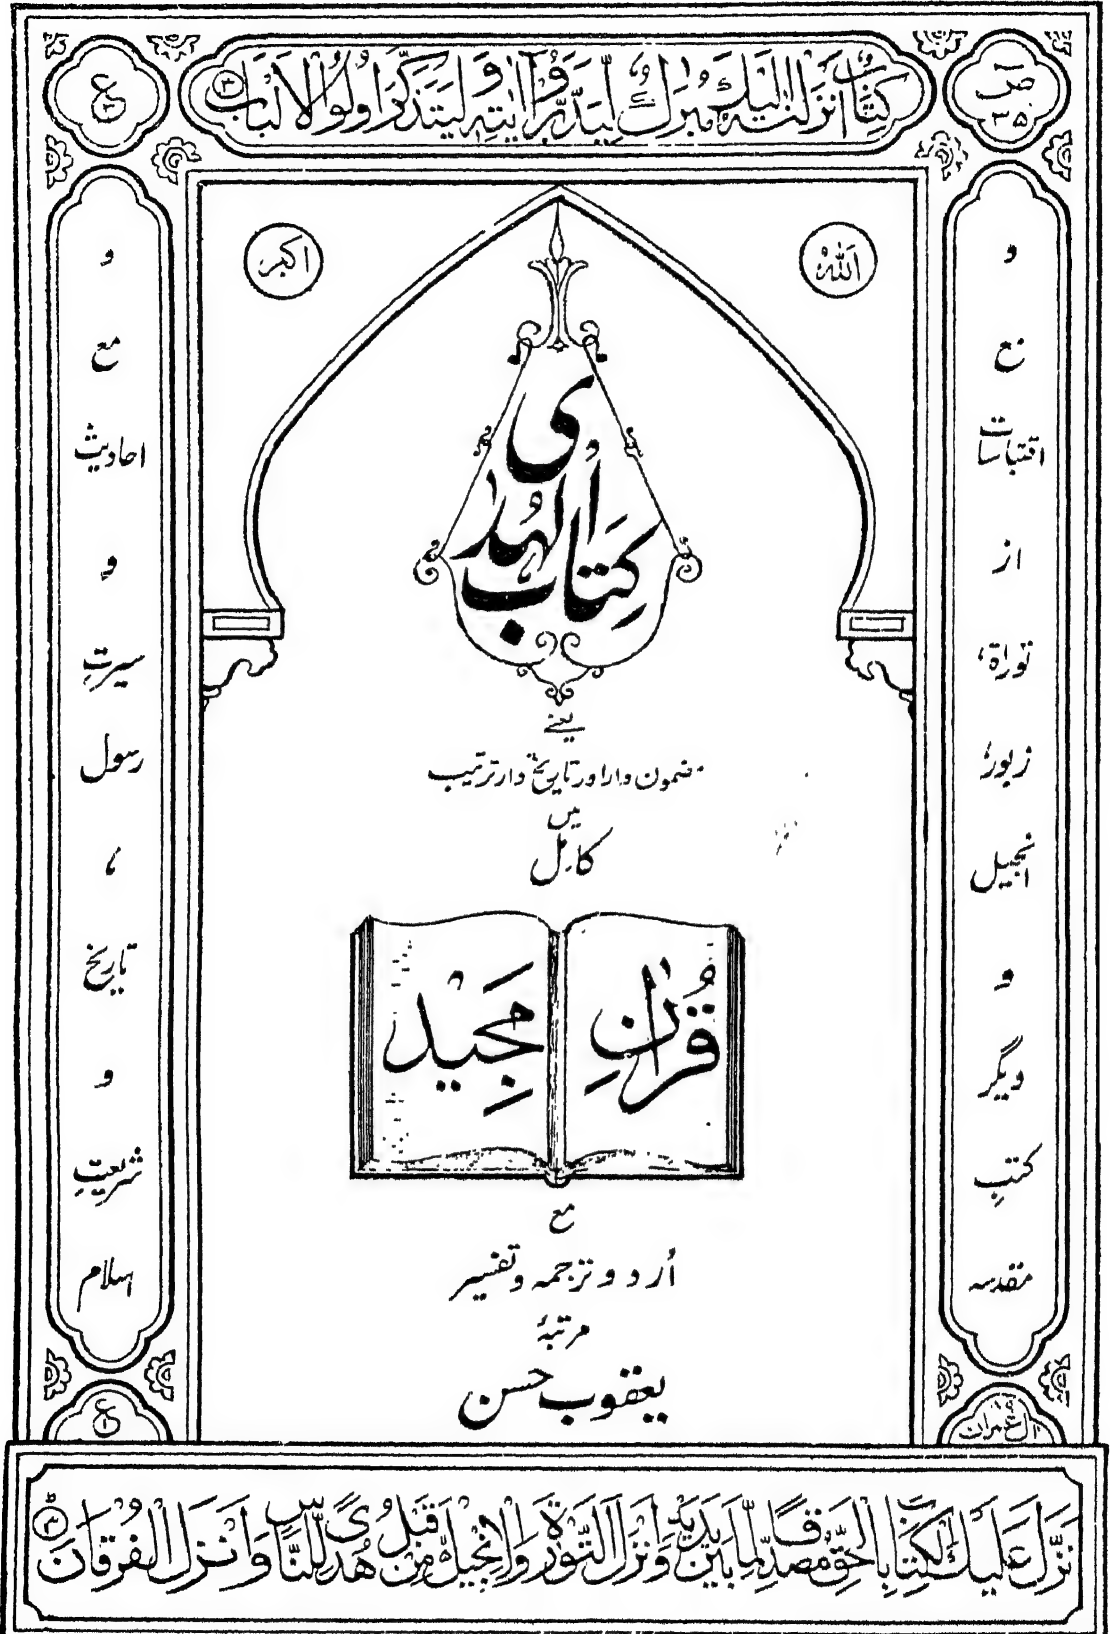 صٓ
۳۵
كِتٰبٌ اَنْزَلْنٰهُ اِلَيْكَ مُبٰرَكٌ لِّيَدَّبَّرُوْٓا اٰيٰتِهٖ وَلِيَتَذَكَّرَ اُولُوا الْاَلْبَابِ
ع
۳
اللّٰهُ
اکبر
کِتَابُ الہُدٰی
یعنے
مضمون وار اور تاریخ وار ترتیب
میں
کامِل
قُرْاٰنِ مَجِیْد
مع
اُردو ترجمہ و تفسیر
مرتبۂ
یعقوب حسن
و
مع
اقتباسات
از
توراۃ،
زبور،
انجیل
و
دیگر
کتبِ
مقدسہ
و
مع
احادیث
و
سیرتِ
رسول
،
تاریخ
و
شریعتِ
اسلام
اٰل عمران
ع
۱
نَزَّلَ عَلَيْكَ الْكِتٰبَ بِالْحَقِّ مُصَدِّقًا لِّمَا بَيْنَ يَدَيْهِ وَاَنْزَلَ التَّوْرٰىةَ وَالْاِنْجِيْلَ مِنْ قَبْلُ هُدًى لِّلنَّاسِ وَاَنْزَلَ الْفُرْقَانَ